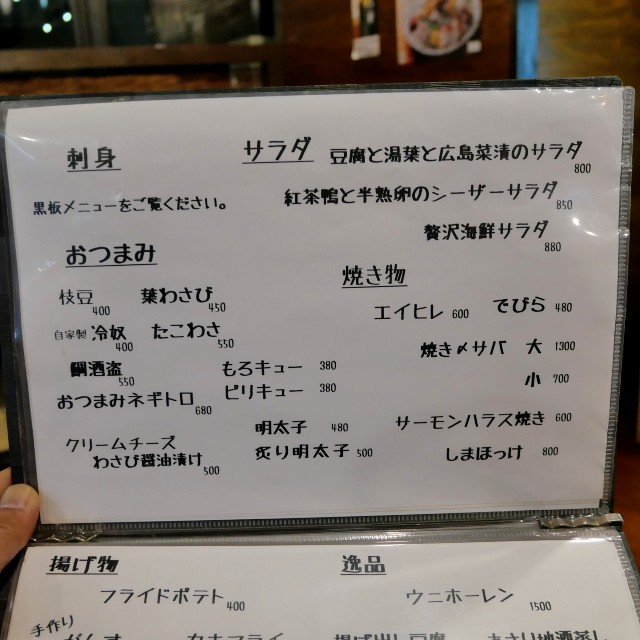 刺身
黒板メニューをご覧ください。
サラダ
豆腐と湯葉と広島菜漬のサラダ 800
紅茶鴨と半熟卵のシーザーサラダ 850
贅沢海鮮サラダ 880
おつまみ
枝豆 400 葉わさび 450
自家製 冷奴 400 たこわさ 550
鯛酒盗 550 もろキュー 380
おつまみネギトロ 680 ピリキュー 380
クリームチーズ
わさび醤油漬け 500
明太子 480
炙り明太子 500
焼き物
エイヒレ 600 でびら 480
焼き〆サバ 大 1300
小 700
サーモンハラス焼き 600
しまほっけ 800
揚げ物
フライドポテト 400
手作り
がんす カキフライ
逸品
ウニホーレン 1500
揚げ出し豆腐 あさり沙酒蒸し